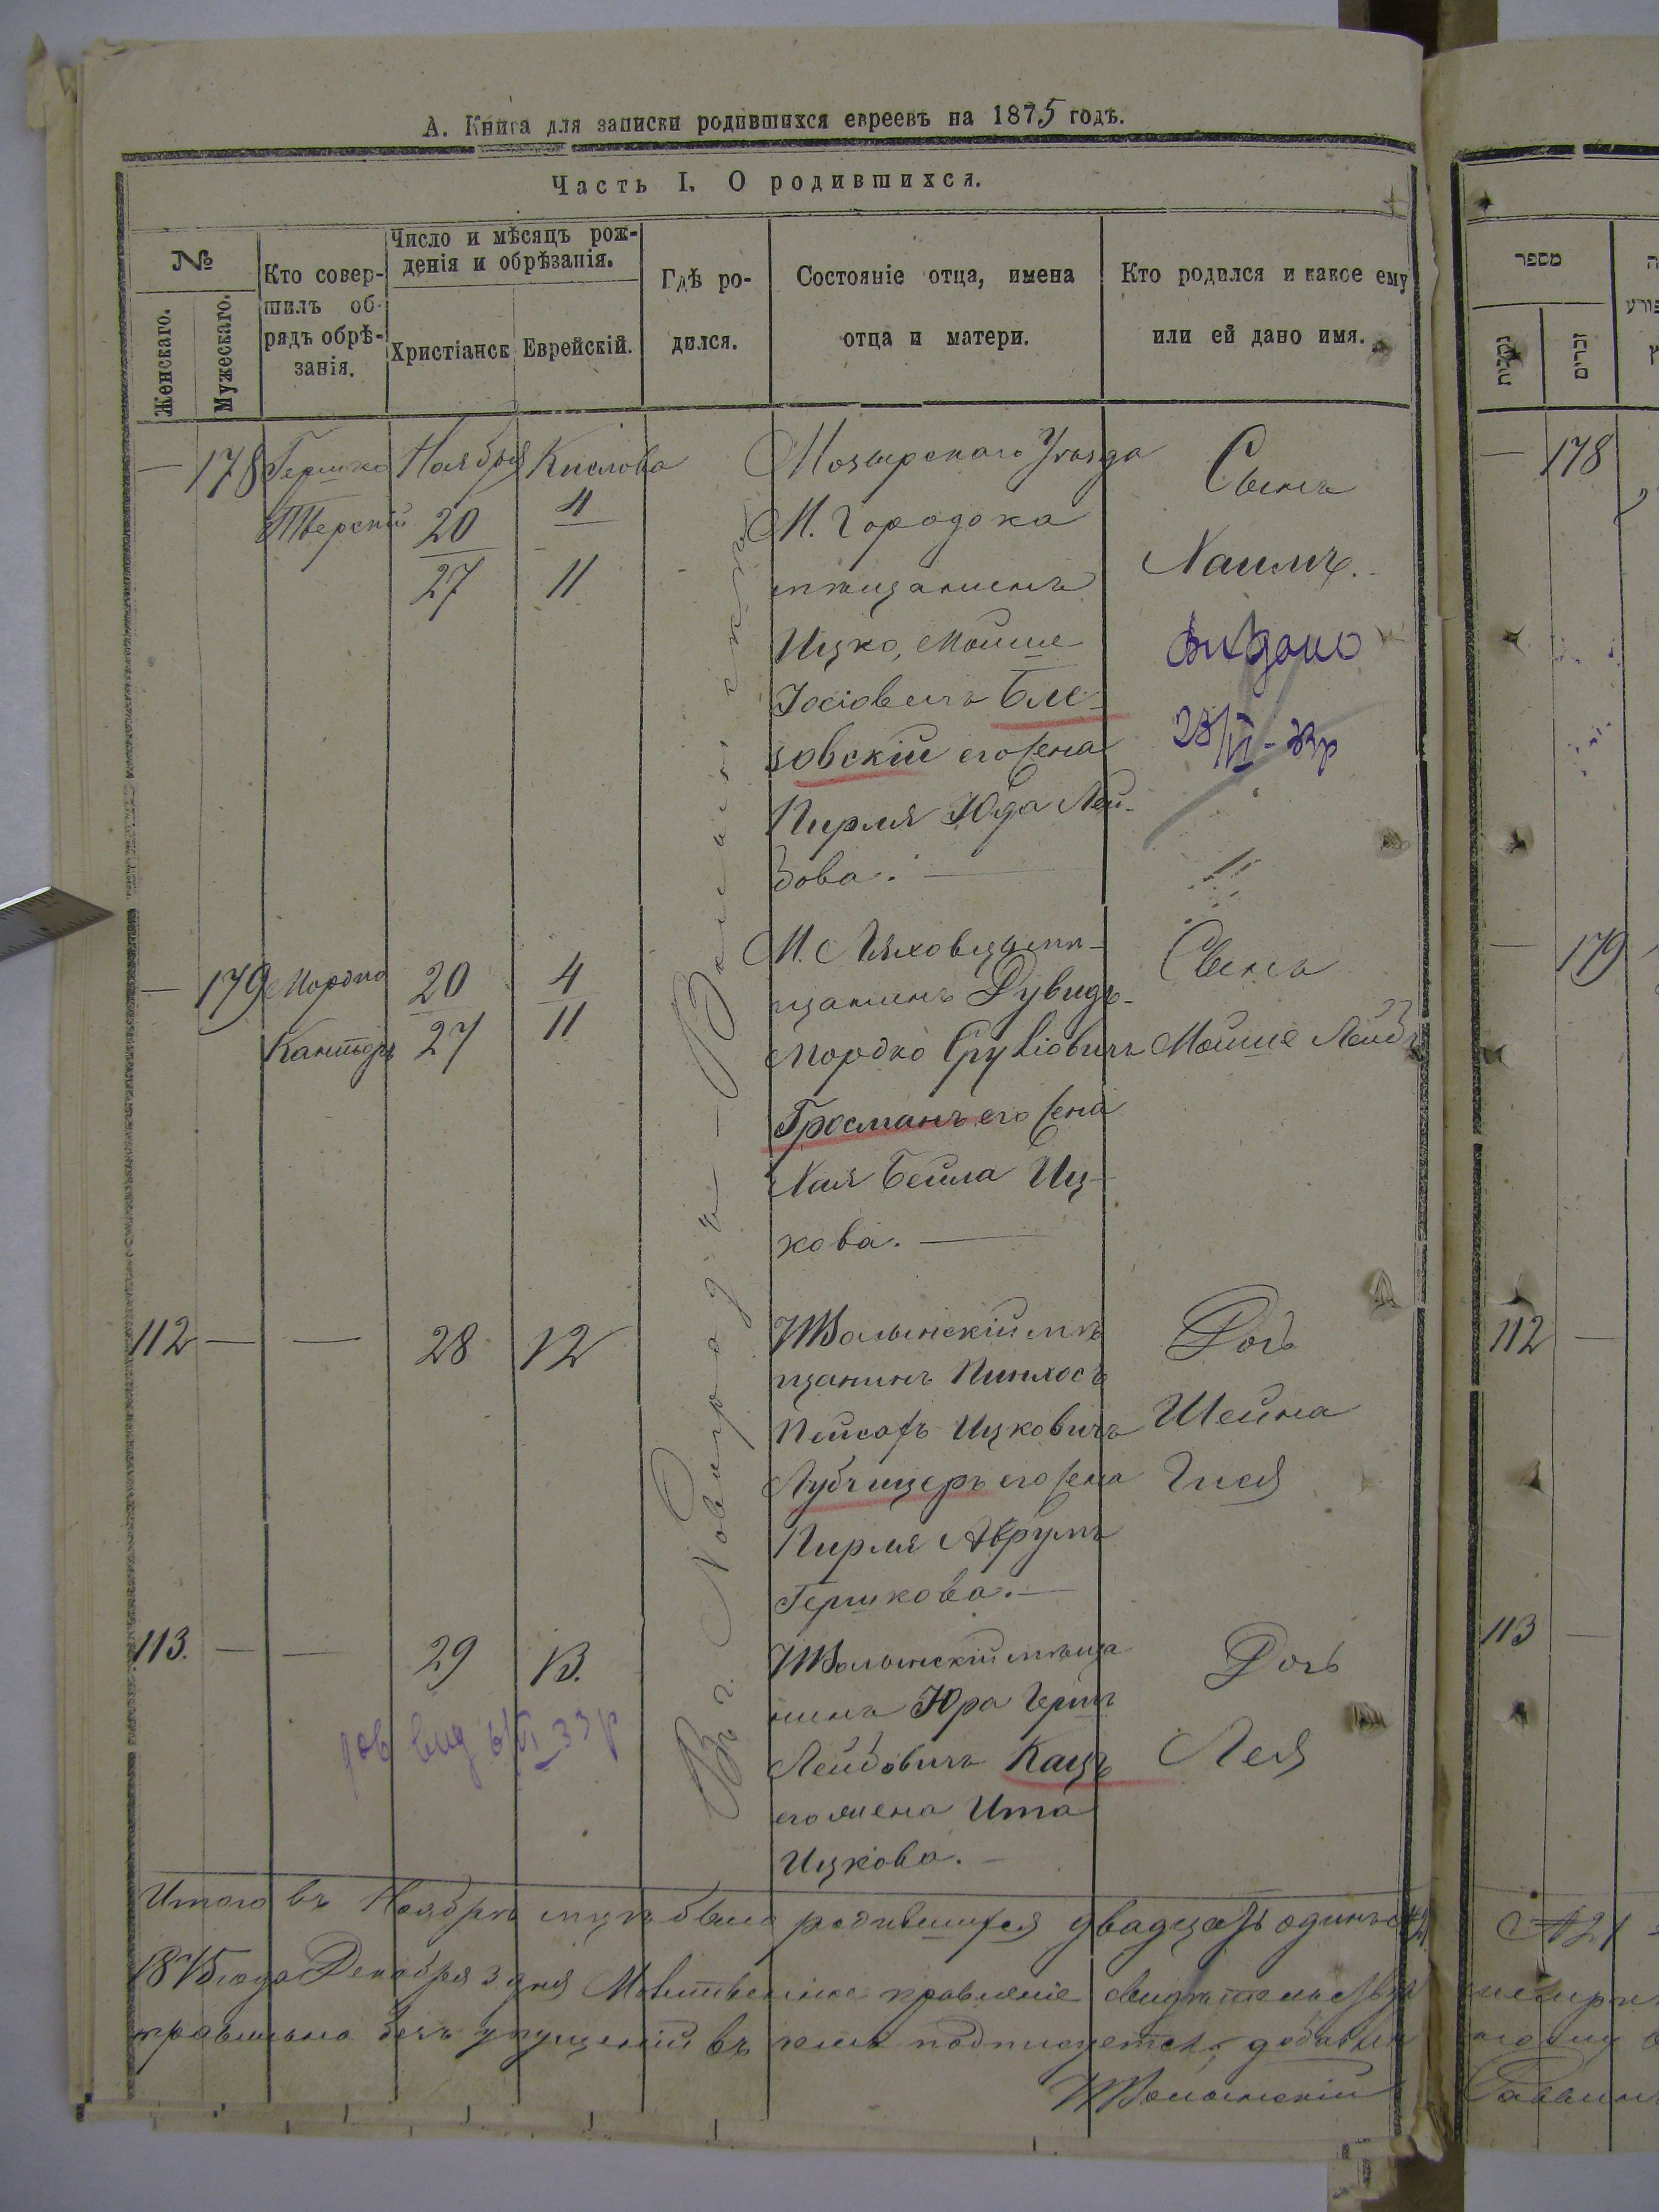 А. Книга для записки родившихся евреевъ на 1875 годъ.
Часть I. О родившихся.
№
Женскаго.
Мужескаго.
Кто совер-
шилъ об-
рядъ обрѣ-
занія.
Число и мѣсяцъ рож-
денія и обрѣзанія.
Христіанск
Еврейскій.
Гдѣ ро-
дился.
Состояніе отца, имена
отца и матери.
Кто родился и какое ему
или ей дано имя.
מספר
נקבות
זכרים
— 178 Гершко Тверскій
Ноября 20 27
Кислова 4 11
Мозырскаго Уѣзда
М. Городока
мѣщанинъ
Ицко, Мойше
Іосіовичъ Бле-
зовскій его жена
Пирля Юда Лей-
бова. —
Сынъ
Хаимъ.
Видано
— 178
— 179 Мордко Канторъ
20 27
4 11
М. Ляховецъ мѣ-
щанинъ Дувидъ-
Мордко Сруліовичъ
Гросманъ его жена
Хая Бейла Иц-
кова. —
Сынъ
Мойше Лейбъ
— 179
Въ г. Новградѣ-Волынскѣ
112 — — 28 12
НВолынскій мѣ-
щанинъ Пинхосъ
Пейсахъ Ицковичъ
Лубчицеръ его жена
Пирля Аврумъ
Гершкова. —
Дочь
Шейна
Гися
112 —
113. — — 29 13.
НВолынскій мѣща
нинъ Юра Герш
Лейбовичъ Кацъ
его жена Ита
Ицкова. —
Дочь
Лея
113 —
Итого въ Ноябрѣ мцѣ было родившихся двадцать одинъ
1875 года Декабря 3 дня Молитвенное правленіе свидѣтельствуя
правильно безъ упущеній въ чемъ подписуется
НВолынскій
№ 21